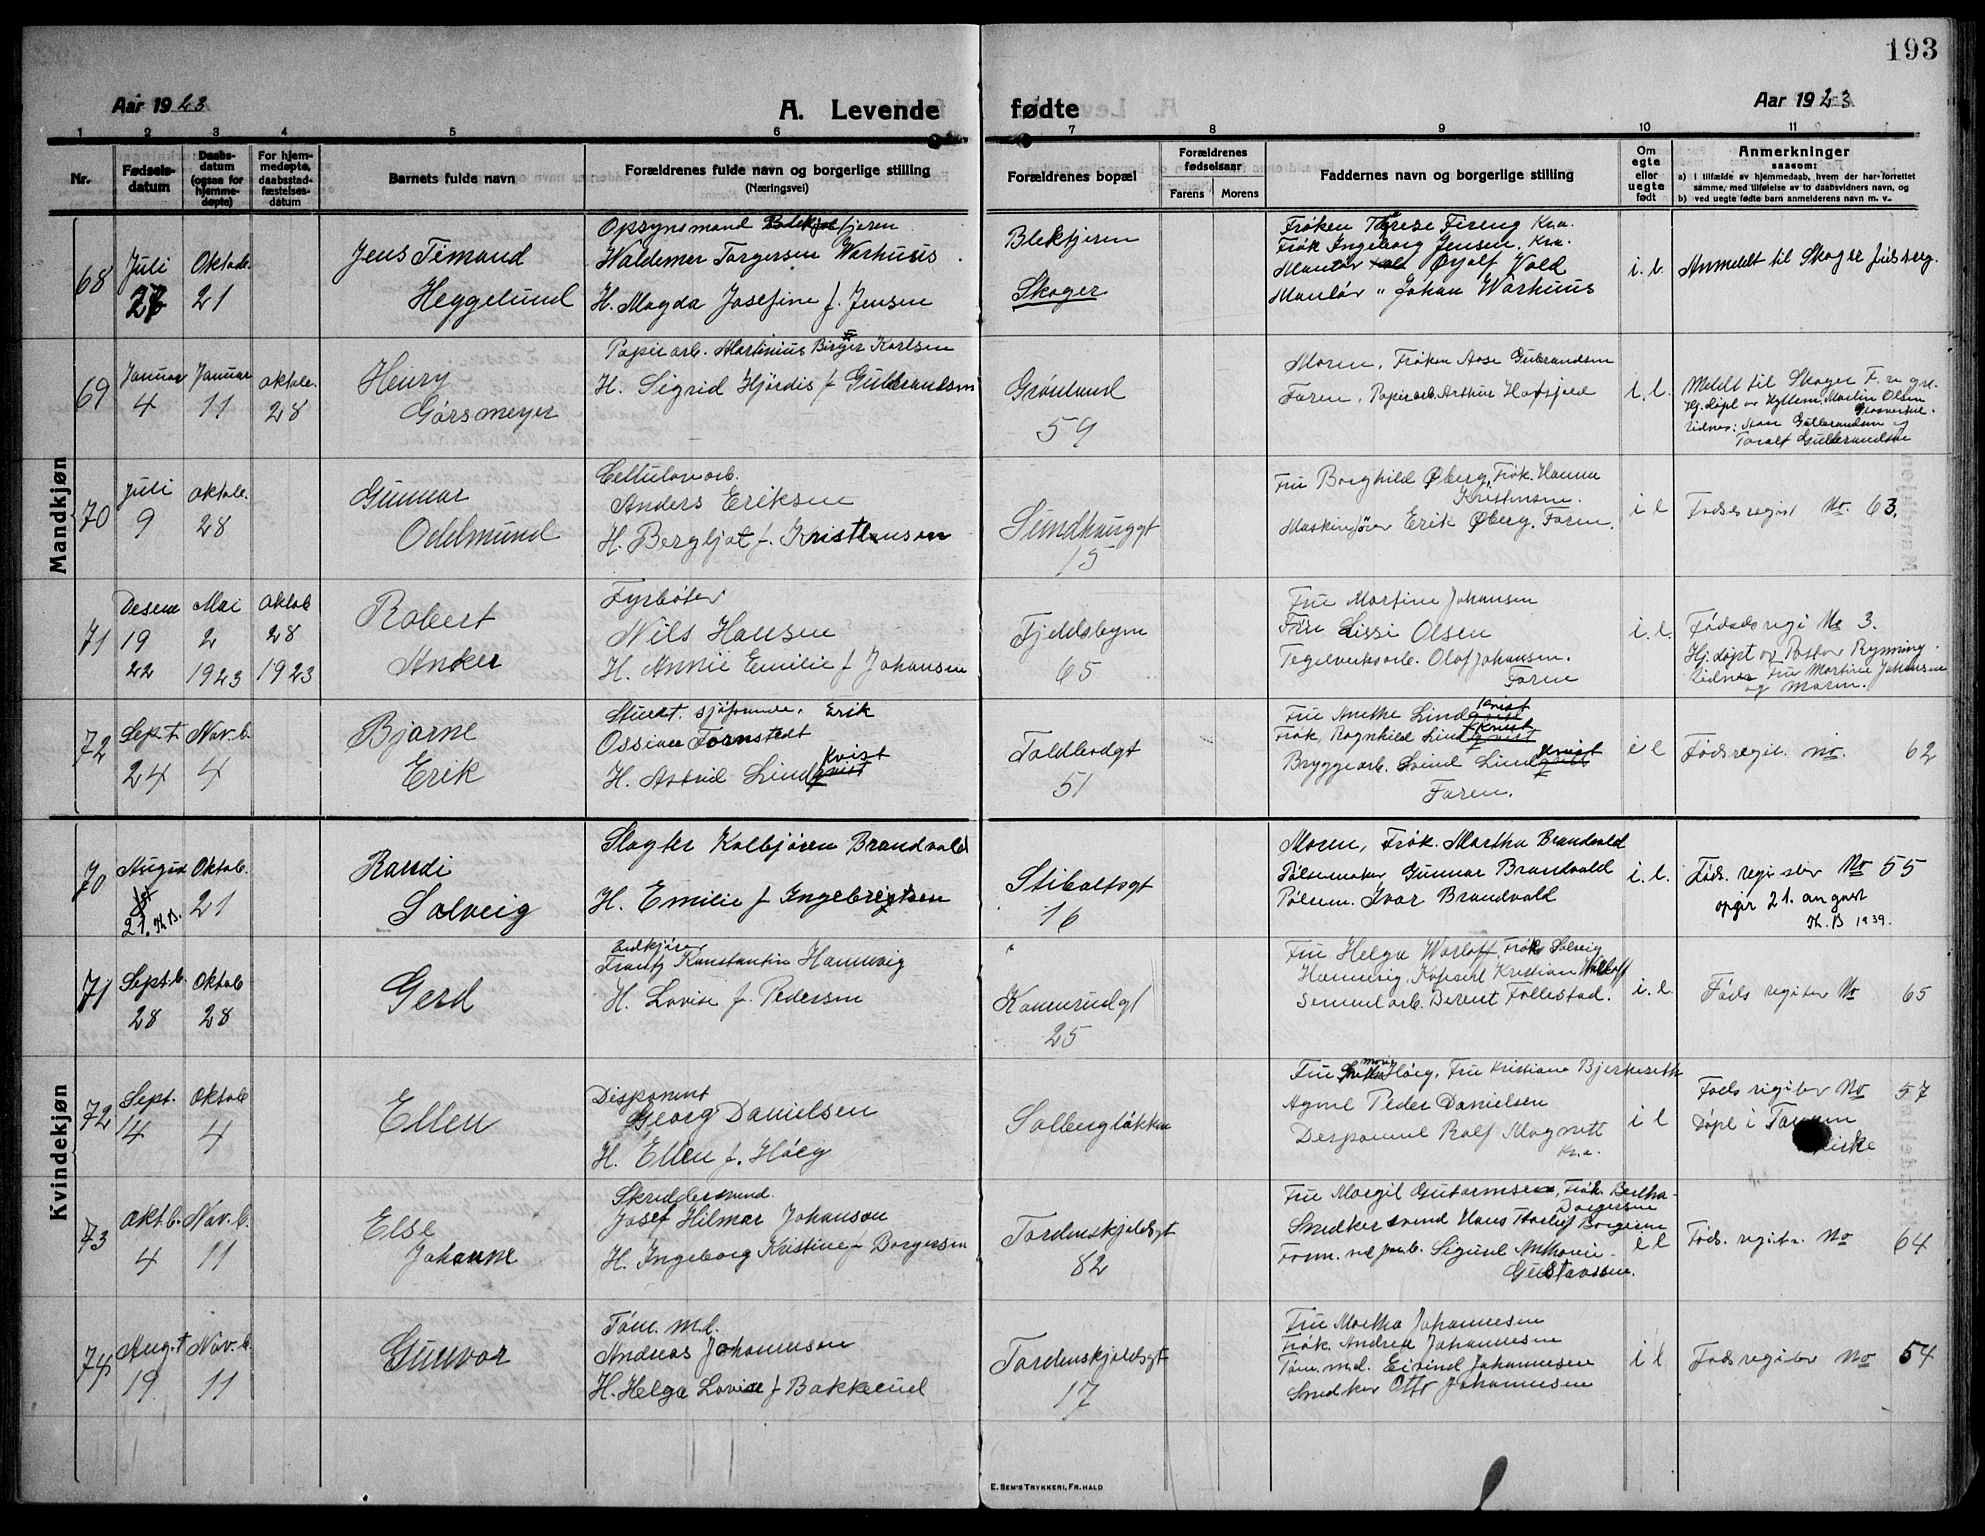 193
Aar 1923
A. Levende fødte
Aar 1923
1 2 3 4 5 6 7 8 9 10 11
Nr.
Fødsels-
datum
Daabs-
datum
(ogsaa for
hjemme-
døpte)
For hjem-
medøpte,
daabsstad-
fæstelses-
datum
Barnets fulde navn
Forældrenes fulde navn og borgerlige stilling
(Næringsvei)
Forældrenes bopæl
Forældrenes
fødselsaar
Farens Morens
Faddernes navn og borgerlige stilling
Om
egte
eller
uegte
født
Anmerkninger
saasom:
a) i tilfælde av hjemmedaab, hvem der har forrettet
samme, med tilføielse av to daabsvidners navn, og
b) ved uegte fødte barn anmelderens navn m. v..
Mandkjøn
68
Juli
27
Oktobr.
21
Jens Timand
Heggelund
Opsynsmand
Waldemer Torgersen Warhuus
H. Magda Josefine f. Jensen
Blektjern
Skoger
Frøken Therese Fireng Kra.
Frøk Ingeborg Jensen, Kra.
Øyolf Vold
" Johan Warhuus
i. l.
Anmeldt til Skoger
69
Januar
4
Januar
11
Oktobr.
28
Henry
Gørsmeyer
Papirarb. Martinius Birger Karlsen
H. Sigrid Hjørdis f Gulbrandsen
Grønland
59
Moren, Frøken Aase Gulbrandsen
Faren, Papirarb. Arthur Hofsjeld
i. l.
Meldt til Skoger
Hj. døpt av Martin Olsen
Vidner: Aase Gulbrandsen og
Toralf Gulbrandsen
70
Juli
9
Oktob.
28
Gunnar
Oddmund
Cellulosearb.
Anders Eriksen
H. Bergljot f. Kristiansen
Sundhauggt
15
Fru Borghild Øberg, Frøk. Hanna
Kristiansen.
Maskinfører Erik Øberg, Faren.
i l
Fødselsregist No. 63.
71
Desem
19
22
Mai
2
1923
Oktob
28
1923
Robert
Anker
Fyrbøter
Nils Hansen
H. Annie Emilie f Johansen
Fjeldsbyen
65
Fru Martine Johansen
Frøk Lissi Olsen
Tegelverksarb. Olaf Johansen.
Faren
i. l.
Fødselsregi No 3.
Hj. døpt av Pastor Rynning.
Vidner Fru Martine Johansen
og Moren.
72
Sept
24
Nov.b.
4
Bjarne
Erik
Stuert. sjøfarende. Erik
Ossian Fornstedt
H. Astrid Lindkvist
Toldbodgt
51
Fru Anethe Lindkvist
Frøk. Ragnhild Lindkvist
Bryggearb. Svend Lindkvist
Faren.
i l
Fødsregist. no. 62
Kvindekjøn
70
August
21. Th. B.
Oktob.
21
Randi
Solveig
Slagter Kolbjøren Brandvold
H. Emilie f Ingebrigtsen
Stiboltsgt
16
Moren, Frøk. Martha Brandvold
Pølsemaker Gunnar Brandvold
Pølsem. Ivar Brandvold
i. l.
Føds. register No 55
opgir 21. august
Th. B 1939.
71
Sept.b.
28
Oktob
28
Gerd
Frantz Konstantin Hannevig
H. Lovise f. Pedersen
Konnerudgt
25
Fru Helga Warloff, Frøk Solveig
Hannevig, Kristian Warloff
Berent Follestad.
i. l.
Føds register No 65
72
Sept.
14
Oktob
4
Ellen
Disponent
Georg Danielsen
H. Ellen f. Høeg
Solbergløkken
Fru Høeg, Fru Kristiane Bjerkeseth
Agent Peder Danielsen
Disponent Rolf Magnett
Kr.a.
i l
Føds register No 57
Døpt i Tangen
73
Oktb.
4
Nov.b.
11
Else
Johanne
Skreddersvend.
Josef Hilmar Johanson
H. Ingeborg Kristine f Borgersen
Tordenskjoldsgt
82
Fru Margit Gutormsen, Frøk. Bertha
Borgersen
Snedkersvend Hans Thorleif Borgersen
Sigurd Anthoni
Gustavssen.
i l
Føds. regist. No 64
74
Augst
19
Nov.b.
11
Gunvor
Tøm. m.d.
Andreas Johannesen
H. Helga Lovise f Bakkerud
Tordenskjoldsgt
17
Fru Martha Johannesen
Frøk. Andrea Johannesen
Tøm. m.d. Eivind Johannesen
Snedker Otto Johannesen
i l
Føds register No 54
E. SEM'S TRYKKERI, FR.HALD